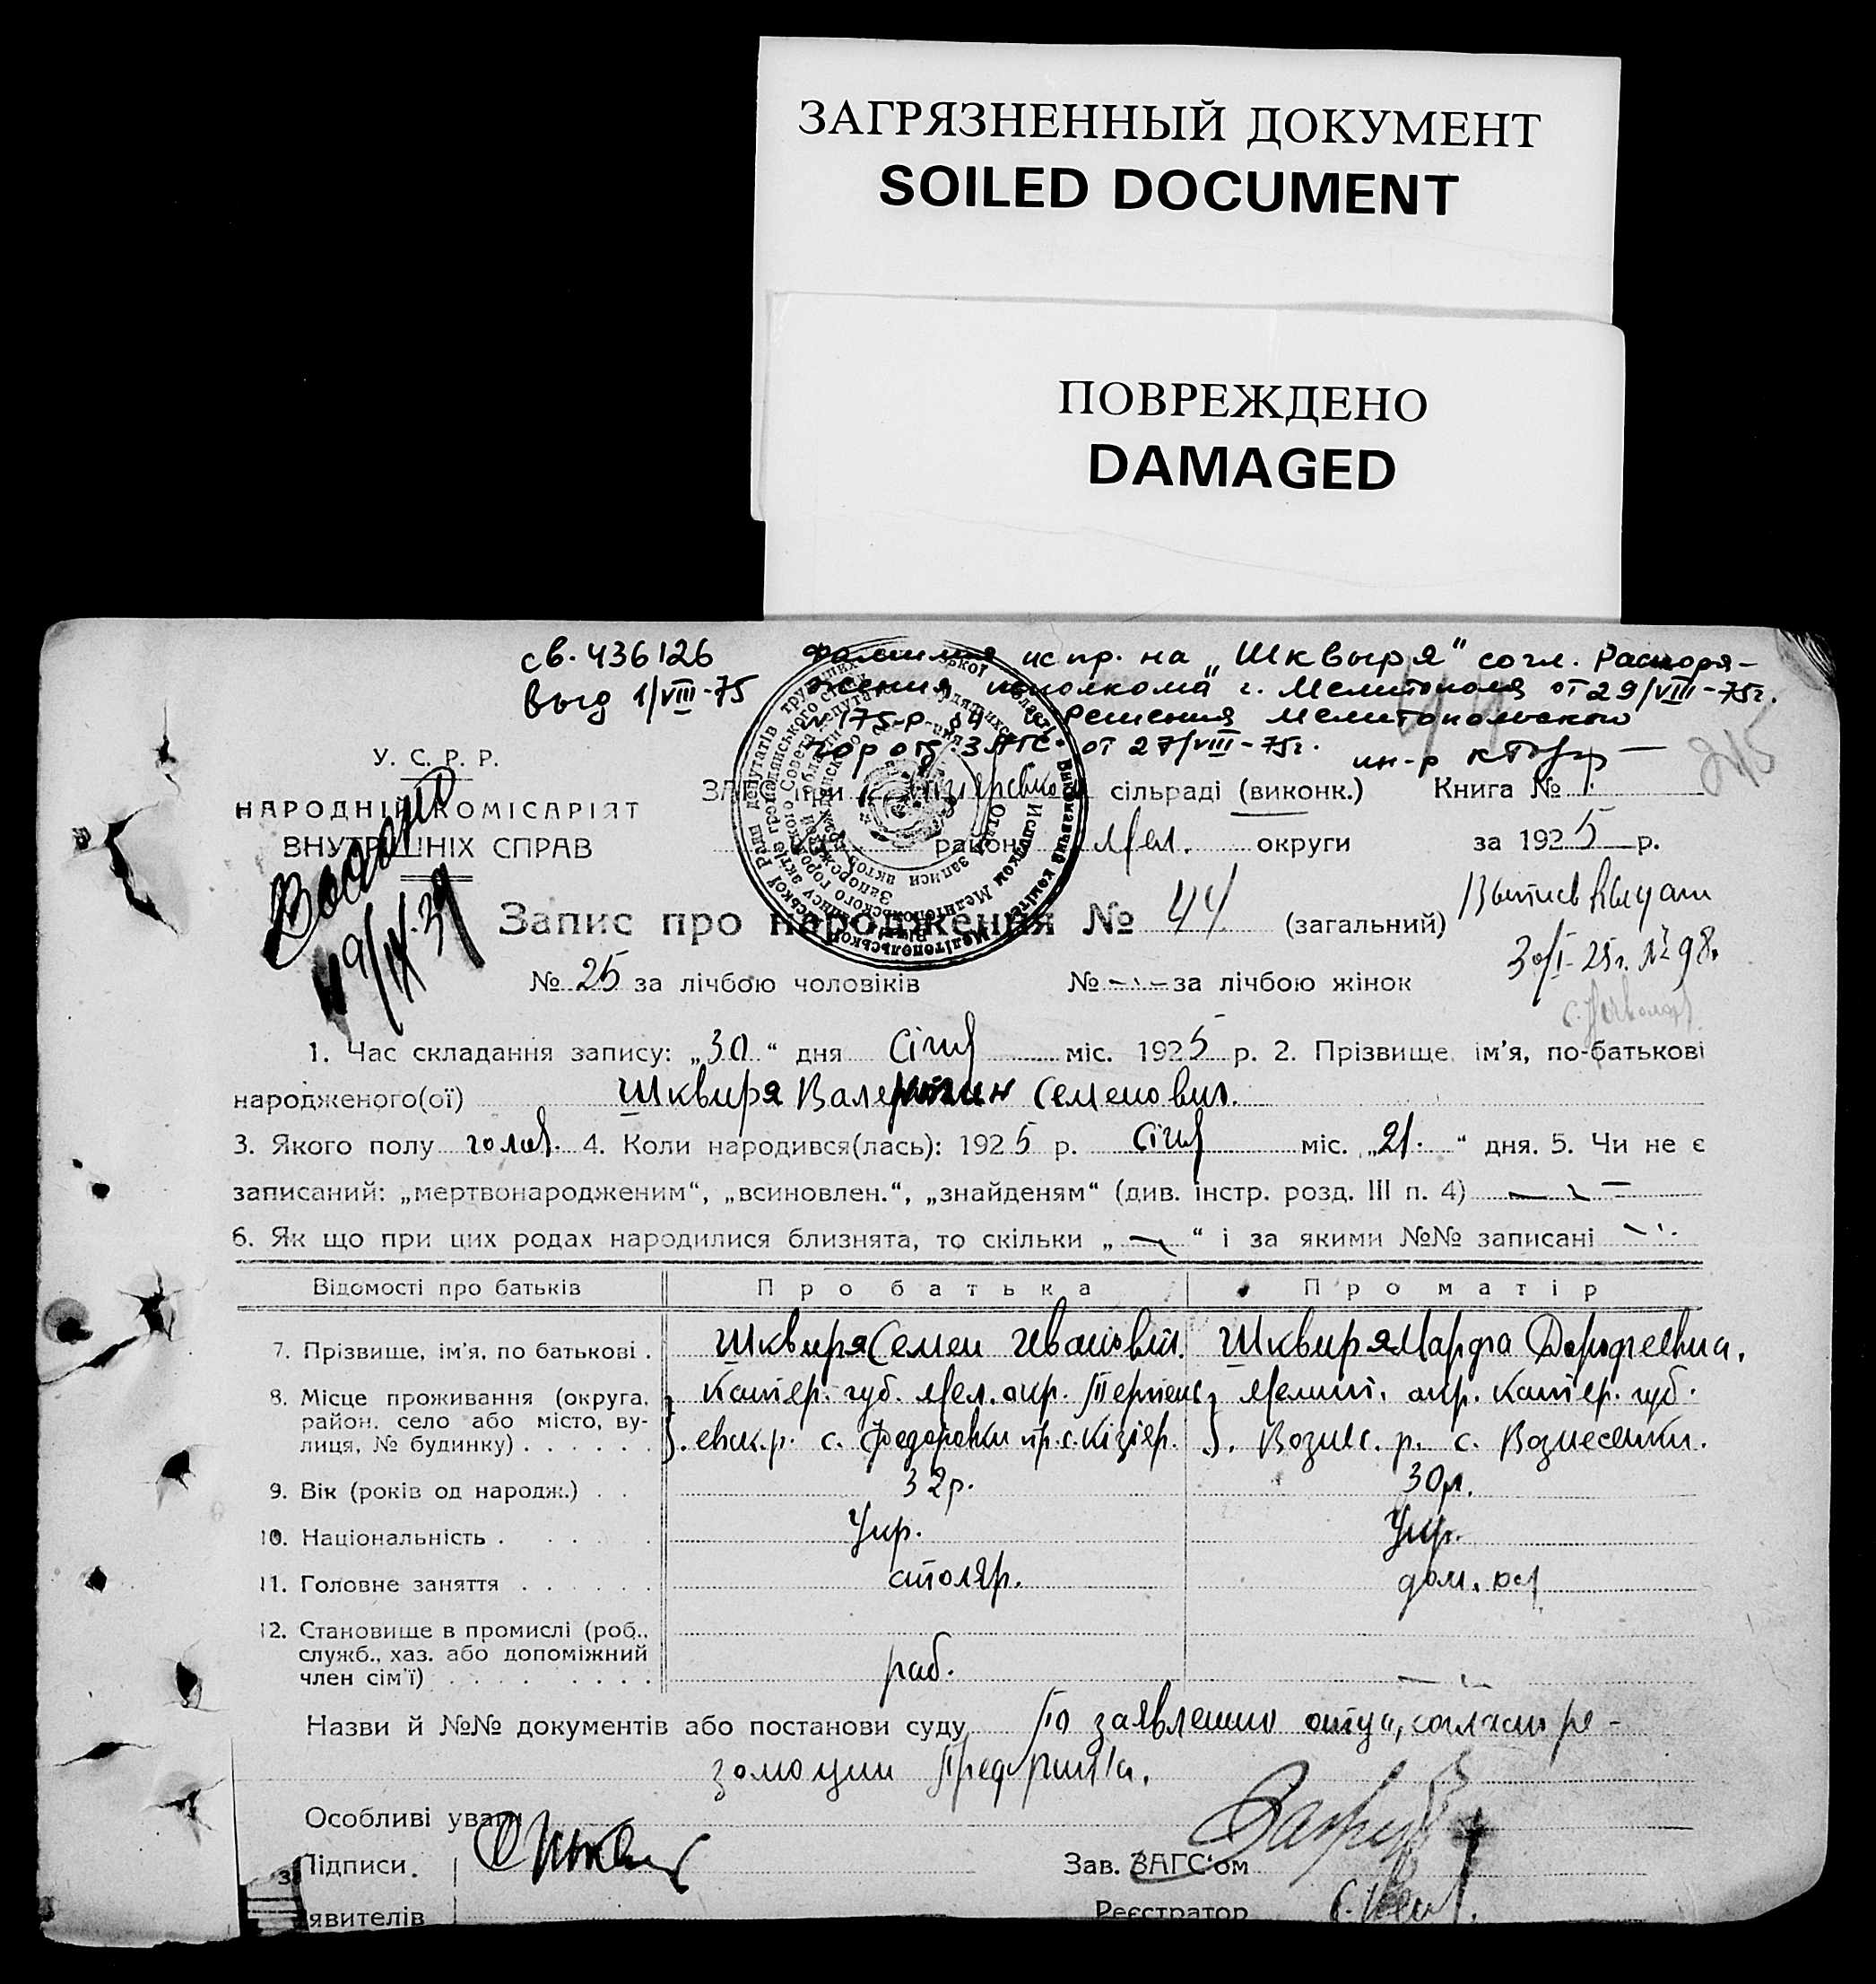 ЗАГРЯЗНЕННЫЙ ДОКУМЕНТ
SOILED DOCUMENT
ПОВРЕЖДЕНО
DAMAGED
св. 436126
выд 1/VIII-75
Фамилия испр. на „Шквыря“ согл. Распоря-
жения исполкома г. Мелитополя от 29/VIII-75г.
№ 175-р. и Решения Мелитопольского
гор отд. ЗАГС от 27/VIII-75г.
ин-р
У. С. Р. Р.
НАРОДНІЙ КОМІСАРІЯТ
ВНУТРІШНІХ СПРАВ
ЗАГС при Кізіярсько сільраді (виконк.)
Книга № 1
215
району Мел. округи
за 1925 р.
Запис про народження № 44 (загальний)
30/I-25г. № 98.
№ 25 за лічбою чоловіків
№ - за лічбою жінок
1. Час складання запису: „30“ дня Січ міс. 1925 р. 2. Прізвище, ім'я, по-батькові
народженого(ої) Шквиря Валентин Семенович.
3. Якого полу чолов. 4. Коли народився(лась): 1925 р. Січ міс. „21.“ дня. 5. Чи не є
записаний: „мертвонародженим“, „всиновлен.“, „знайденям“ (див. інстр. розд. III п. 4) —
6. Як що при цих родах народилися близнята, то скільки „—“ і за якими №№ записані
Відомості про батьків
Про батька
Про матір
7. Прізвище, ім'я, по батькові .
Шквиря Семен Иванович.
Шквиря Марфа Дорофеевна.
8. Місце проживання (округа, район, село або місто, вулиця, № будинку) . . . . . .
Катер. губ. Мел. окр. Терпен
евск. р. с. Федоровки пр. с. Кізіяр.
Мелит. окр. Катер. губ.
Вознес. р. с. Вознесенки.
9. Вік (років од народж.) . .
32р.
30р.
10. Національність . . . . .
Укр.
Укр.
11. Головне заняття . . . . . .
столяр.
дом. хоз
12. Становище в промислі (роб.,
служб., хаз. або допоміжний
член сім'ї) . . . . . . . .
раб.
—
Назви й №№ документів або постанови суду По заявлению отца, согласно ре-
золюции Предрика.
Особливі уваги
Підписи.
заявителів
Зав. ЗАГС'ом
Реєстратор